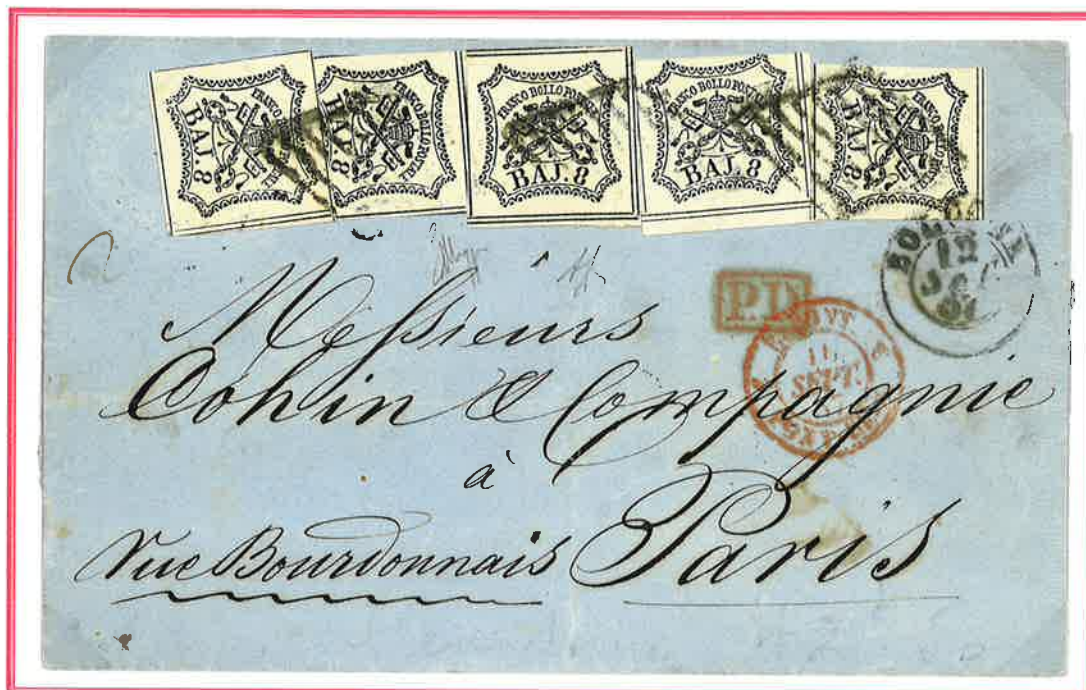 FRANCO BOLLO POSTALE
BAJ. 8
FRANCO BOLLO POSTALE
BAJ. 8
FRANCO BOLLO POSTALE
BAJ. 8
FRANCO BOLLO POSTALE
BAJ. 8
FRANCO BOLLO POSTALE
BAJ. 8
12
P.D.
SEPT.
Messieurs
Cohin & Compagnie
à
Rue Bourdonnais Paris